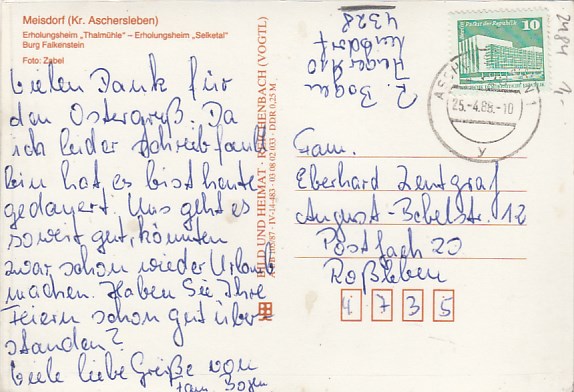 Meisdorf (Kr. Aschersleben)
Erholungsheim „Thalmühle" – Erholungsheim „Selketal"
Burg Falkenstein
Foto: Zabel
Vielen Dank für
den Ostergruß. Da
ich leider schreibfaul
bin hat es bist heute
gedauert. Uns geht es
soweit gut, könnten
zwar schon wieder Urlaub
machen. Haben Sie Ihre
Feiern schon gut über
standen?
Viele liebe Grüße von
Fam. Bogen
BILD UND HEIMAT · REICHENBACH (VOGTL)
IV-14-483 · 03 08 02 033 · DDR 0,25 M
Bogen
4328
10
25.-4.88.-10
y
2484 1,-
Fam.
Eberhard Zentgraf
August-Bebelstr. 12
Postfach 20
Roßleben
4 7 3 5